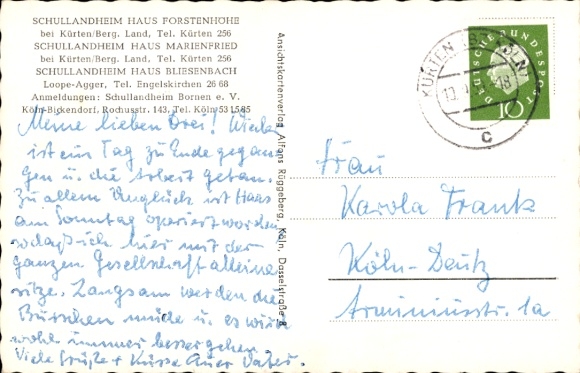 SCHULLANDHEIM HAUS FORSTENHÖHE
bei Kürten/Berg. Land, Tel. Kürten 256
SCHULLANDHEIM HAUS MARIENFRIED
bei Kürten/Berg. Land, Tel. Kürten 256
SCHULLANDHEIM HAUS BLIESENBACH
Loope-Agger, Tel. Engelskirchen 26 68
Anmeldungen: Schullandheim Bornen e. V.
Köln-Bickendorf, Rochusstr. 143, Tel. Köln 53 15 85
Meine lieben Drei! Wieder
ist ein Tag zu Ende gegan
gen u. die Arbeit getan.
Zu allem Unglück ist Haas
am Sonntag operiert worden
sodaß ich hier mit der
ganzen Gesellschaft alleine
sitze. Langsam werden die
Burschen müde u. es wird
wohl immer besser gehen.
Viele Grüße + Küsse Euer Vater.
Ansichtskartenverlag Alfons Rüggeberg, Köln, Dasselstraße
KÜRTEN KÖLN
18
c
DEUTSCHE BUNDESPOST
10
Frau
Karola Frank
Köln-Deutz
Arminiusstr. 1a